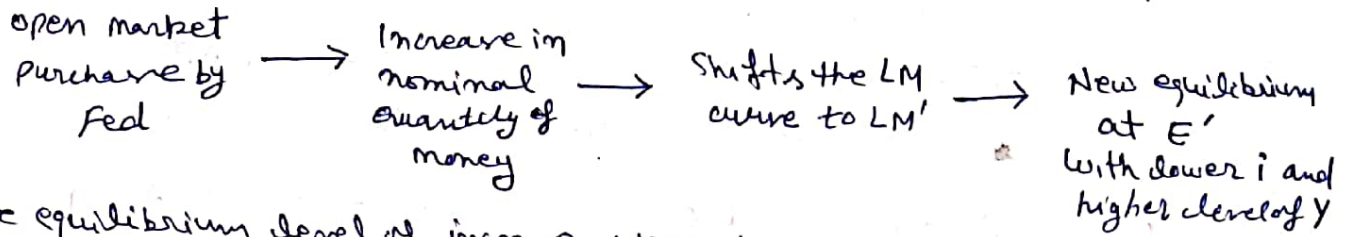 open market
purchase by
Fed
→
Increase in
nominal
quantity of
money
→
Shifts the LM
curve to LM'
→
New equilibrium
at E'
with lower i and
higher level of Y
equilibrium level of